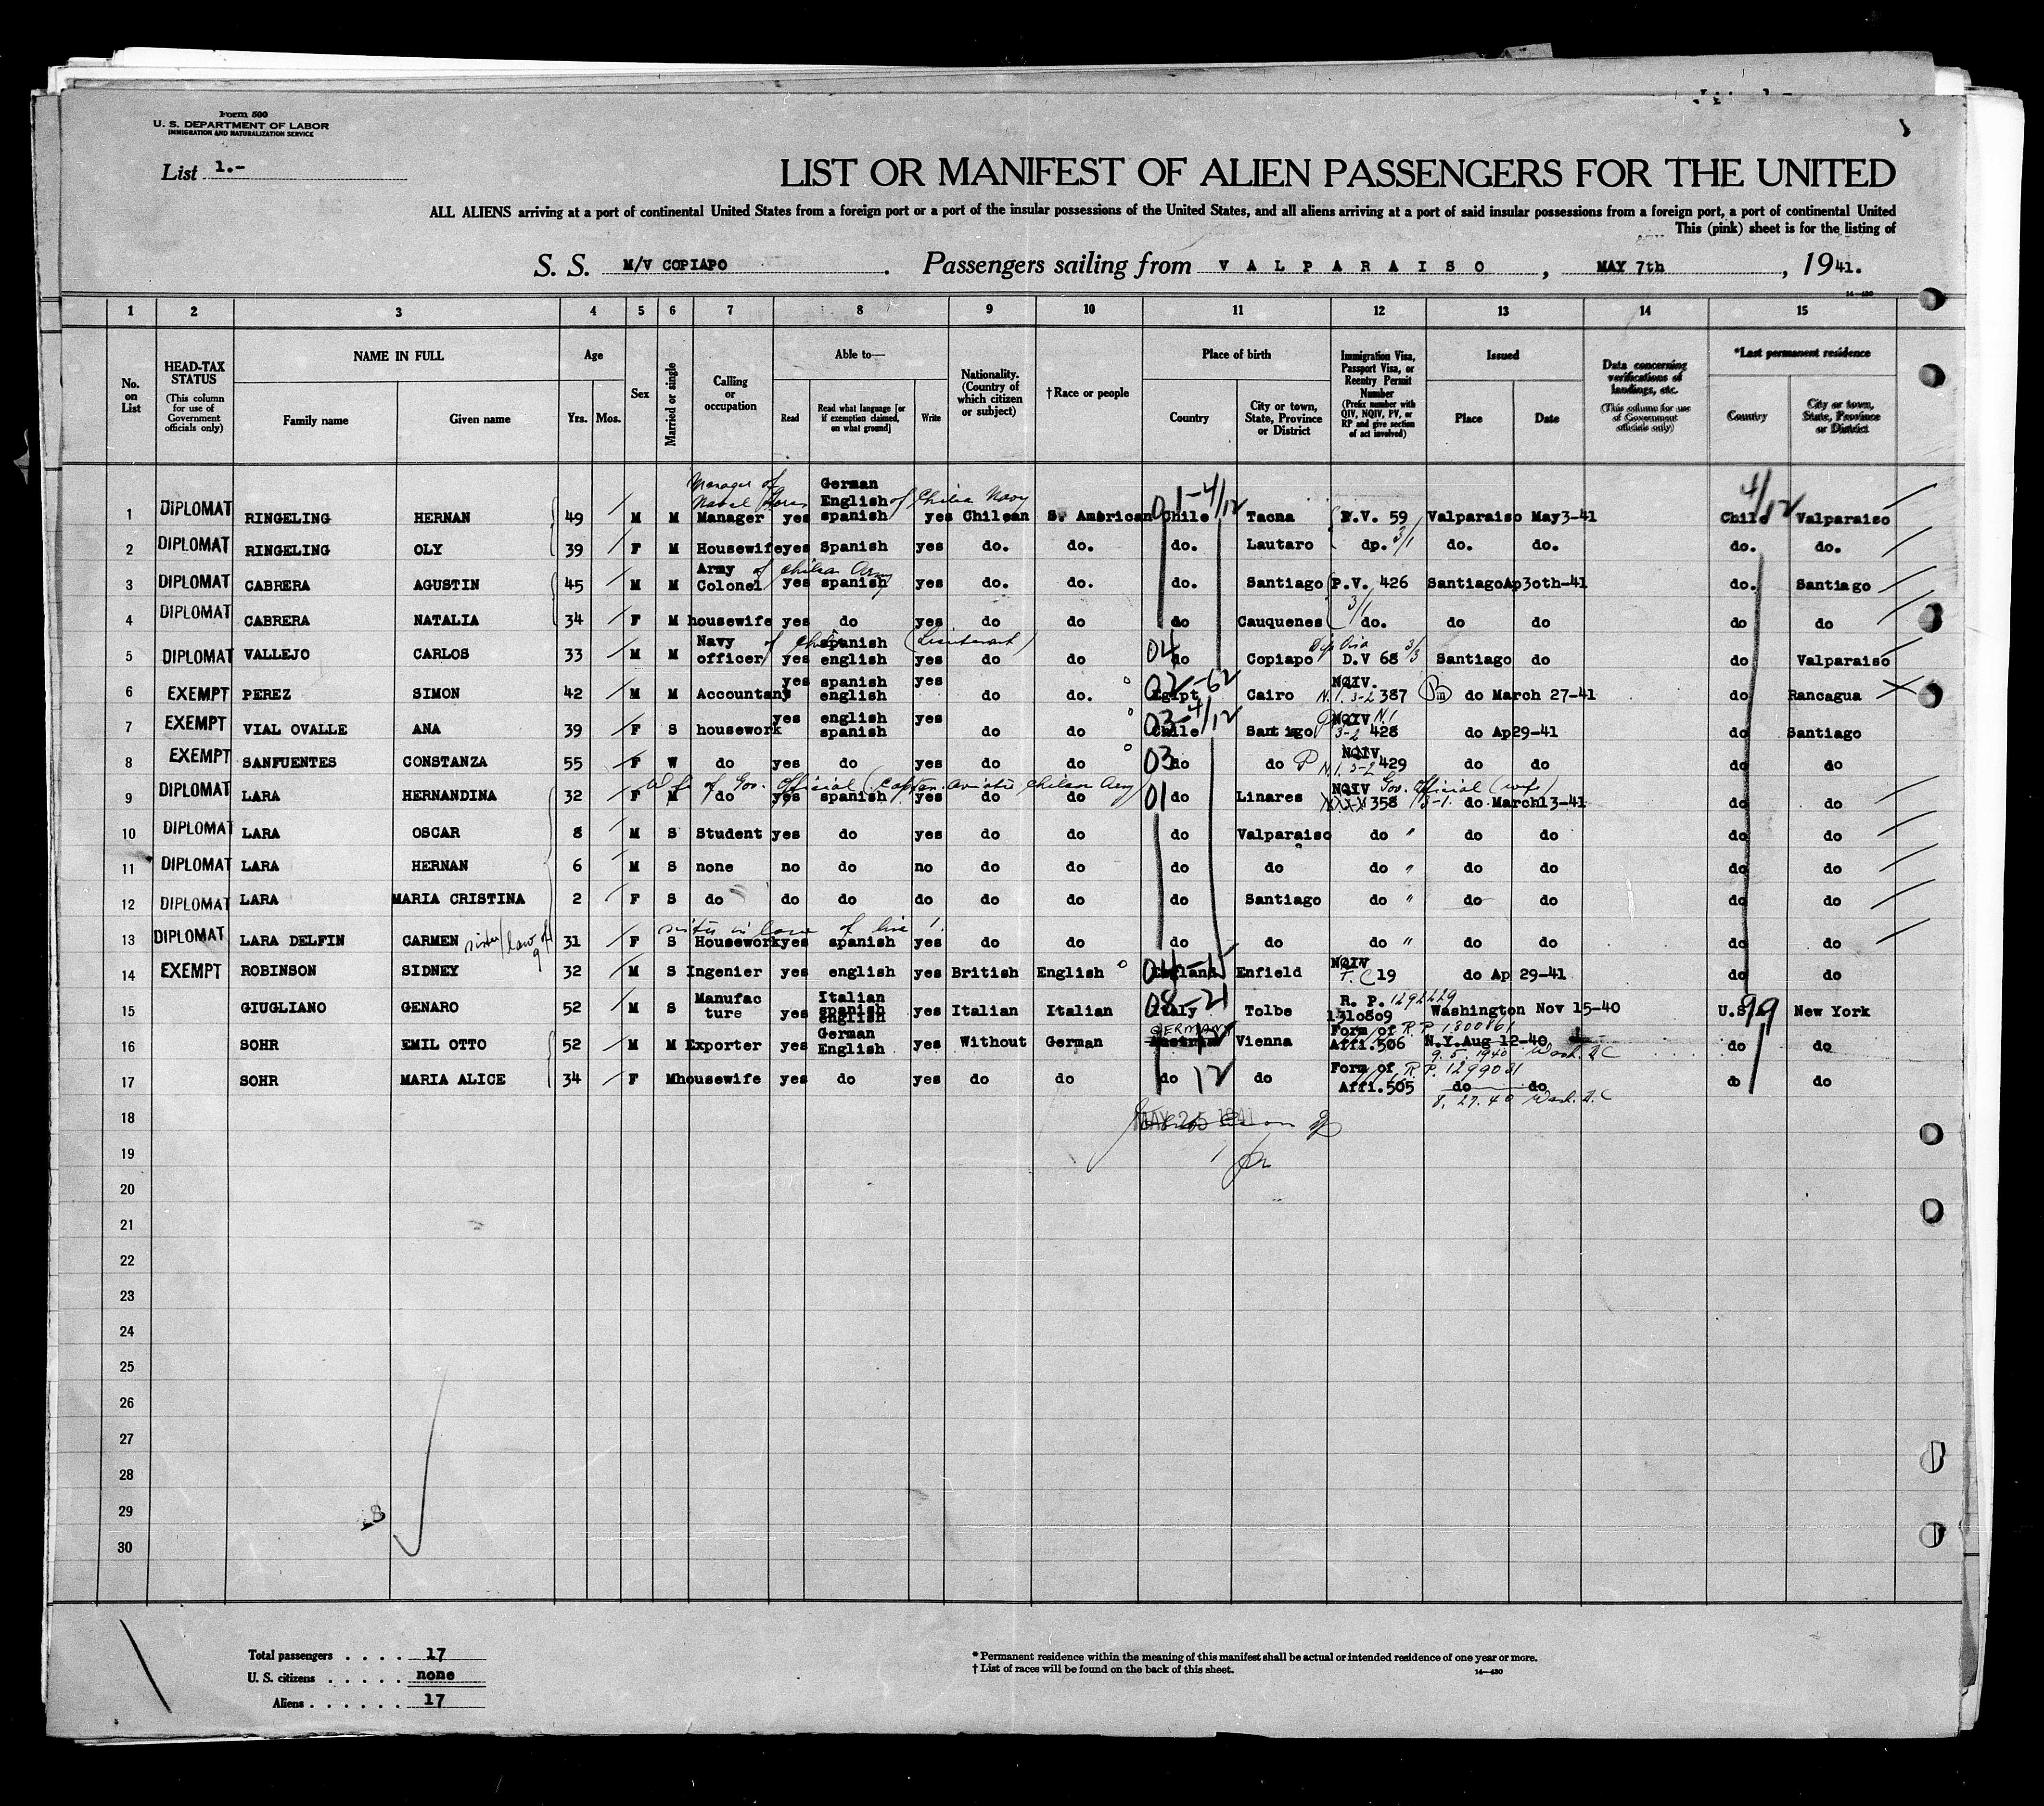 Form 500
U. S. DEPARTMENT OF LABOR
IMMIGRATION AND NATURALIZATION SERVICE
List 1.-
LIST OR MANIFEST OF ALIEN PASSENGERS FOR THE UNITED
ALL ALIENS arriving at a port of continental United States from a foreign port or a port of the insular possessions of the United States, and all aliens arriving at a port of said insular possessions from a foreign port, a port of continental United
This (pink) sheet is for the listing of
S. S. M/V COPIAPO. Passengers sailing from VALPARAISO, MAY 7th, 1941.
14—430
1 2 3 4 5 6 7 8 9 10 11 12 13 14 15
No. on List
HEAD-TAX STATUS (This column for use of Government officials only)
NAME IN FULL
Family name Given name
Age
Yrs. Mos.
Sex
Married or single
Calling or occupation
Able to—
Read Read what language [or if exemption claimed, on what ground] Write
Nationality. (Country of which citizen or subject)
†Race or people
Place of birth
Country City or town, State, Province or District
Immigration Visa, Passport Visa, or Reentry Permit Number (Prefix number with QIV, NQIV, PV, or RP and give section of act involved)
Issued
Place Date
Data concerning verifications of landings, etc. (This column for use of Government officials only)
*Last permanent residence
Country City or town, State, Province or District
Manager of Naval of Chilean Navy 01-4/12 4/12
1 DIPLOMAT RINGELING HERNAN 49 M M Manager yes German English spanish yes Chilean S. American Chile Tacna P.V. 59 Valparaiso May3-41 Chile Valparaiso
2 DIPLOMAT RINGELING OLY 39 F M Housewife yes Spanish yes do. do. do. Lautaro dp. 3/1 do. do. do. do.
3 DIPLOMAT CABRERA AGUSTIN 45 M M Army Colonel of Chilean Army yes spanish yes do. do. do. Santiago P.V. 426 Santiago Ap3oth-41 do. Santiago
4 DIPLOMAT CABRERA NATALIA 34 F M housewife yes do yes do do do Cauquenes 3/1 do. do do do do
5 DIPLOMAT VALLEJO CARLOS 33 M M Navy officer of Chile (Lieutenant) yes spanish english yes do do 04 do Copiapo Dip Visa 3/3 D.V 68 Santiago do do Valparaiso
6 EXEMPT PEREZ SIMON 42 M M Accountant yes spanish english yes do do. 02-62 Egipt Cairo NQIV. N.I. 3-2 387 do March 27-41 do Rancagua
7 EXEMPT VIAL OVALLE ANA 39 F S housework yes english spanish yes do do 03-4/12 Chile Santiago NQIV N.I 3-2 428 do Ap29-41 do Santiago
8 EXEMPT SANFUENTES CONSTANZA 55 F W do yes do yes do do 03 do do P NQIV N.I. 3-2 429 do do do do
Wife of Gov. Official (Captain Chilean Army) Gov. Official (wife)
9 DIPLOMAT LARA HERNANDINA 32 F M do yes spanish yes do do 01 do Linares NQIV 358 3-1. do March13-41 do do
10 DIPLOMAT LARA OSCAR 8 M S Student yes do yes do do do Valparaiso do " do do do do
11 DIPLOMAT LARA HERNAN 6 M S none no do no do do do do do " do do do do
12 DIPLOMAT LARA MARIA CRISTINA 2 F S do do do do do do do Santiago do " do do do do
sister in law of line 9
13 DIPLOMAT LARA DELFIN CARMEN sister/law of 9 31 F S Housework yes spanish yes do do do do do " do do do do
14 EXEMPT ROBINSON SIDNEY 32 M S Ingenier yes english yes British English 04-15 England Enfield NQIV T.C 19 do Ap 29-41 do do
15 GIUGLIANO GENARO 52 M S Manufac ture yes Italian spanish english yes Italian Italian 08-21 Italy Tolbe R. P. 1292229 1310809 Washington Nov 15-40 U.S. 99 New York
16 SOHR EMIL OTTO 52 M M Exporter yes German English yes Without German GERMANY Austria 12 Vienna Form of R.P. 1300861 Affi.506 N.Y.Aug 12-40 9.5.1940 Wash. D C do do
17 SOHR MARIA ALICE 34 F M housewife yes do yes do do do 12 do Form of R.P. 1299081 Affi.505 do do 8.27.40 Wash. D.C do do
18 MAY 25 1941
19
20
21
22
23
24
25
26
27
28
29
30
18
Total passengers . . . . 17
U. S. citizens . . . . . none
Aliens . . . . . . 17
* Permanent residence within the meaning of this manifest shall be actual or intended residence of one year or more.
† List of races will be found on the back of this sheet.
14—430